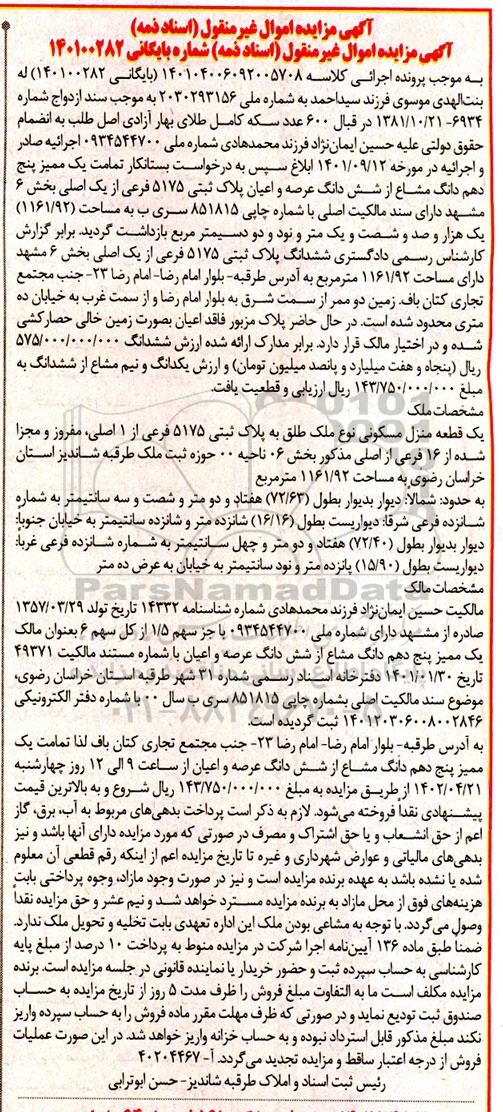 آگهی مزایده اموال غیر منقول (اسناد ذمه)
آگهی مزایده اموال غیر منقول (اسناد ذمه) شماره بایگانی ۱۴۰۱۰۰۲۸۲
به موجب پرونده اجرائی کلاسه ۱۴۰۱۰۴۰۰۶۰۹۲۰۰۵۷۰۸ (بایگانی ۱۴۰۱۰۰۲۸۲) له
بنت‌الهدی موسوی فرزند سیداحمد به شماره ملی ۲۰۳۰۲۹۳۱۵۶ به موجب سند ازدواج شماره
۶۹۳۴- ۱۳۸۱/۱۰/۲۱ در قبال ۶۰۰ عدد سکه کامل طلای بهار آزادی اصل طلب به انضمام
حقوق دولتی علیه حسین ایمان‌نژاد فرزند محمدهادی شماره ملی ۰۹۳۴۵۴۴۷۰۰ اجرائیه صادر
و اجرائیه در مورخه ۱۴۰۱/۰۹/۱۲ ابلاغ سپس به درخواست بستانکار تمامت یک ممیز پنج
دهم دانگ مشاع از شش دانگ عرصه و اعیان پلاک ثبتی ۵۱۷۵ فرعی از یک اصلی بخش ۶
مشهد دارای سند مالکیت اصلی با شماره چاپی ۸۵۱۸۱۵ سری ب به مساحت (۱۱۶۱/۹۲)
یک هزار و صد و شصت و یک متر و نود و دو دسیمتر مربع بازداشت گردید. برابر گزارش
کارشناس رسمی دادگستری ششدانگ پلاک ثبتی ۵۱۷۵ فرعی از یک اصلی بخش ۶ مشهد
دارای مساحت ۱۱۶۱/۹۲ مترمربع به آدرس طرقبه- بلوار امام رضا- امام رضا ۲۳- جنب مجتمع
تجاری کتان باف. زمین دو ممر از سمت شرق به بلوار امام رضا و از سمت غرب به خیابان ده
متری محدود شده است. در حال حاضر پلاک مزبور فاقد اعیان بصورت زمین خالی حصارکشی
شده و در اختیار مالک قرار دارد. برابر مدارک ارائه شده ارزش ششدانگ ۵۷۵/۰۰۰/۰۰۰/۰۰۰
ریال (پنجاه و هفت میلیارد و پانصد میلیون تومان) و ارزش یکدانگ و نیم مشاع از ششدانگ به
مبلغ ۱۴۳/۷۵۰/۰۰۰/۰۰۰ ریال ارزیابی و قطعیت یافت.
مشخصات ملک
یک قطعه منزل مسکونی نوع ملک طلق به پلاک ثبتی ۵۱۷۵ فرعی از ۱ اصلی، مفروز و مجزا
شده از ۱۶ فرعی از اصلی مذکور بخش ۰۶ ناحیه ۰۰ حوزه ثبت ملک طرقبه شاندیز استان
خراسان رضوی به مساحت ۱۱۶۱/۹۲ مترمربع
به حدود: شمالا: دیوار بدیوار بطول (۷۲/۶۳) هفتاد و دو متر و شصت و سه سانتیمتر به شماره
شانزده فرعی شرقا: دیواریست بطول (۱۶/۱۶) شانزده متر و شانزده سانتیمتر به خیابان جنوبا:
دیوار بدیوار بطول (۷۲/۴۰) هفتاد و دو متر و چهل سانتیمتر به شماره شانزده فرعی غربا:
دیواریست بطول (۱۵/۹۰) پانزده متر و نود سانتیمتر به خیابان به عرض ده متر
مشخصات مالک
مالکیت حسین ایمان‌نژاد فرزند محمدهادی شماره شناسنامه ۱۴۳۳۲ تاریخ تولد ۱۳۵۷/۰۳/۲۹
صادره از مشهد دارای شماره ملی ۰۹۳۴۵۴۴۷۰۰ با جز سهم ۱/۵ از کل سهم ۶ بعنوان مالک
یک ممیز پنج دهم دانگ مشاع از شش دانگ عرصه و اعیان با شماره مستند مالکیت ۴۹۳۷۱
تاریخ ۱۴۰۱/۰۱/۳۰ دفترخانه اسناد رسمی شماره ۳۱ شهر طرقبه استان خراسان رضوی،
موضوع سند مالکیت اصلی بشماره چاپی ۸۵۱۸۱۵ سری ب سال ۰۰ با شماره دفتر الکترونیکی
۱۴۰۱۲۰۳۰۶۰۰۸۰۰۲۸۴۶ ثبت گردیده است.
به آدرس طرقبه- بلوار امام رضا- امام رضا ۲۳- جنب مجتمع تجاری کتان باف لذا تمامت یک
ممیز پنج دهم دانگ مشاع از شش دانگ عرصه و اعیان از ساعت ۹ الی ۱۲ روز چهارشنبه
۱۴۰۲/۰۴/۲۱ از طریق مزایده به مبلغ ۱۴۳/۷۵۰/۰۰۰/۰۰۰ ریال شروع و به بالاترین قیمت
پیشنهادی نقداً فروخته می‌شود. لازم به ذکر است پرداخت بدهی‌های مربوط به آب، برق، گاز
اعم از حق انشعاب و یا حق اشتراک و مصرف در صورتی که مورد مزایده دارای آنها باشد و نیز
بدهی‌های مالیاتی و عوارض شهرداری و غیره تا تاریخ مزایده اعم از اینکه رقم قطعی آن معلوم
شده یا نشده باشد به عهده برنده مزایده است و نیز در صورت وجود مازاد، وجوه پرداختی بابت
هزینه‌های فوق از محل مازاد به برنده مزایده مسترد خواهد شد و نیم عشر و حق مزایده نقداً
وصول می‌گردد. با توجه به مشاعی بودن ملک این اداره تعهدی بابت تخلیه و تحویل ملک ندارد.
ضمناً طبق ماده ۱۳۶ آیین‌نامه اجرا شرکت در مزایده منوط به پرداخت ۱۰ درصد از مبلغ پایه
کارشناسی به حساب سپرده ثبت و حضور خریدار یا نماینده قانونی در جلسه مزایده است. برنده
مزایده مکلف است ما به التفاوت مبلغ فروش را ظرف مدت ۵ روز از تاریخ مزایده به حساب
صندوق ثبت تودیع نماید و در صورتی که ظرف مهلت مقرر مانده فروش را به حساب سپرده واریز
نکند مبلغ مذکور قابل استرداد نبوده و به حساب خزانه واریز خواهد شد. در این صورت عملیات
فروش از درجه اعتبار ساقط و مزایده تجدید می‌گردد. آ- ۴۰۲۰۴۴۶۷
رئیس ثبت اسناد و املاک طرقبه شاندیز- حسن ابوترابی
ParsNamadData